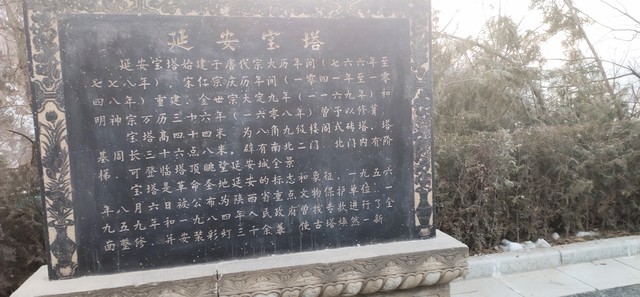 延安宝塔
延安宝塔始建于唐代宗大历年间（七六六年至
七七八年），宋仁宗庆历年间（一〇四一年至一〇
四八年）重建。金世宗大定九年（一一六九年）和
明神宗万历三十六年（一六〇八年）曾予以修葺。
宝塔高四十四米，为八角九级楼阁式砖塔，塔
基周长三十六点八米，辟有南北二门，门内有阶
梯，可登临塔顶眺望延安城全景
宝塔是革命圣地延安的标志和象征，一九五六
年八月六日被公布为陕西省重点文物保护单位。一
九五九年和一九八四年人民政府曾拨专款进行了全
面整修，并安装彩灯三十余盏，使古塔焕然一新